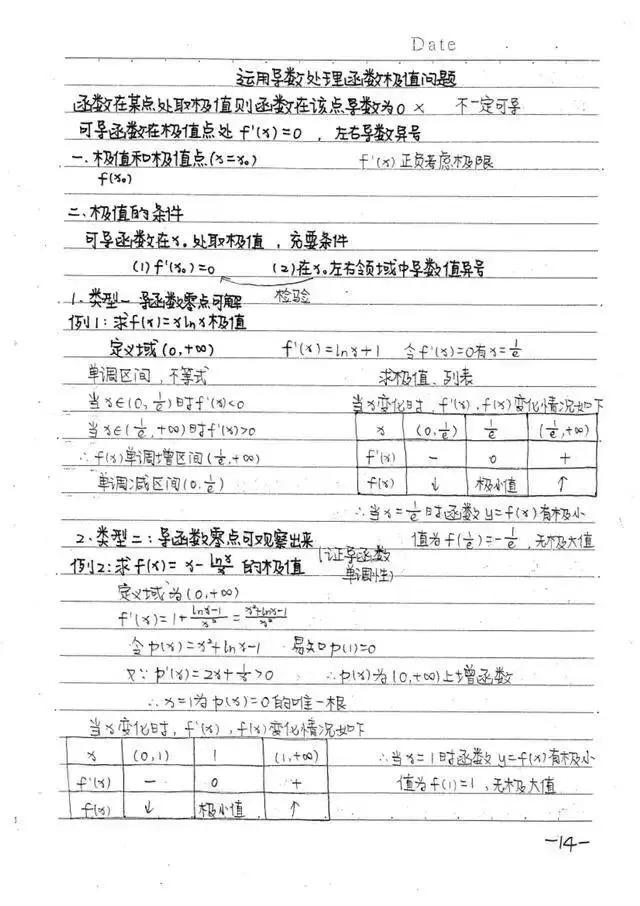 Date
运用导数处理函数极值问题
函数在某点处取极值则函数在该点导数为0 × 不一定可导
可导函数在极值点处 f'(x)=0 , 左右导数异号
一.极值和极值点(x=x₀) f'(x)正负考虑极限
f(x₀)
二.极值的条件
可导函数在x₀处取极值 , 充要条件
(1) f'(x₀)=0 (2)在x₀左右领域中导数值异号
检验
1.类型一 导函数零点可解
例1:求f(x)=xlnx极值
定义域(0,+∞) f'(x)=lnx+1 令f'(x)=0有x=1/e
单调区间,不等式 求极值、列表
当x∈(0,1/e)时f'(x)<0 当x变化时,f'(x),f(x)变化情况如下
当x∈(1/e,+∞)时f'(x)>0 x (0,1/e) 1/e (1/e,+∞)
∴f(x)单调增区间(1/e,+∞) f'(x) − 0 +
单调减区间(0,1/e) f(x) ↓ 极小值 ↑
∴当x=1/e时函数y=f(x)有极小
值为f(1/e)=-1/e,无极大值
2.类型二:导函数零点可观察出来
(证导函数单调性)
例2:求f(x)=x-lnx/x的极值
定义域为(0,+∞)
f'(x)=1+(lnx-1)/x²=(x²+lnx-1)/x²
令p(x)=x²+lnx-1 易知p(1)=0
又∵p'(x)=2x+1/x>0 ∴p(x)为(0,+∞)上增函数
∴x=1为p(x)=0的唯一根
当x变化时,f'(x),f(x)变化情况如下
x (0,1) 1 (1,+∞) ∴当x=1时函数y=f(x)有极小
f'(x) − 0 + 值为f(1)=1,无极大值
f(x) ↓ 极小值 ↑
-14-